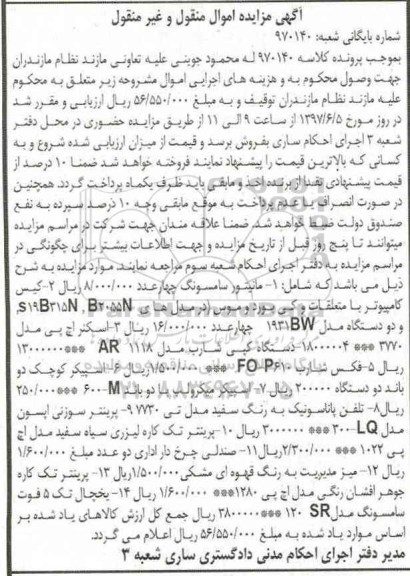 آگهی مزایده اموال منقول و غیر منقول
شماره بایگانی شعبه: ۹۷۰۱۴۰
بموجب پرونده کلاسه ۹۷۰۱۴۰ له محمود جوینی علیه تعاونی مازند نظام مازندران
جهت وصول محکوم به و هزینه های اجرایی اموال مشروحه زیر متعلق به محکوم
علیه مازند نظام مازندران توقیف و به مبلغ ۵۶/۵۵۰/۰۰۰ ریال ارزیابی و مقرر شد
در روز مورخ ۱۳۹۷/۶/۵ از ساعت ۹ الی ۱۱ از طریق مزایده حضوری در محل دفتر
شعبه ۳ اجرای احکام ساری بفروش برسد و قیمت از میزان ارزیابی شده شروع و به
کسانی که بالاترین قیمت را پیشنهاد نمایند فروخته خواهد شد ضمنا ۱۰ درصد از
قیمت پیشنهادی نقدا از برنده اخذ و مابقی باید ظرف یکماه پرداخت گردد. همچنین
در صورت انصراف یا عدم پرداخت به موقع مابقی وجه ۱۰ درصد سپرده به نفع
صندوق دولت ضبط خواهد شد. ضمنا علاقه مندان جهت شرکت در مراسم مزایده
میتوانند تا پنج روز قبل از تاریخ مزایده و جهت اطلاعات بیشتر برای چگونگی در
مراسم مزایده به دفتر اجرای احکام شعبه سوم مراجعه نمایند. موارد مزایده به شرح
ذیل می باشد که شامل: ۱- مانیتور سامسونگ چهارعدد ۸/۰۰۰/۰۰۰ ریال ۲-کیس
کامپیوتر با متعلقات و کی بورد و موس (در مدل های S19B315N, B2055N,
و دو دستگاه مدل 1931BW چهارعدد ۱۶/۰۰۰/۰۰۰ ریال ۳-اسکنر اچ پی مدل
۳۷۷۰ *** ۱۸۰۰۰۰۰۴ دستگاه کپی شارپ مدل AR ۱۱۱۸ *** ۱۳۰۰۰۰۰۰
ریال ۵-فکس شارپ FO-P۶۱۰ *** ۱/۵۰۰/۰۰۰ریال ۶- اسپیکر کوچک دو
باند دو دستگاه ۲۰۰۰۰۰ ریال ۷- اسپیکر میکرولب با دو باند M-۶۰۰ *** ۲۵۰/۰۰۰
ریال۸- تلفن پاناسونیک به رنگ سفید مدل تی ۷۷۳۰ ۹- پرینتر سوزنی اپسون
مدل LQ-۳۰۰ *** ۳۰۰۰۰۰۰ ریال ۱۰-پرینتر تک کاره لیزری سیاه سفید مدل اچ
پی ۱۰۲۲ *** ۲/۳۰۰/۰۰۰ریال ۱۱- صندلی چرخ دار اداری دو عدد مبلغ ۱/۶۰۰/۰۰۰
ریال ۱۲- میز مدیریت به رنگ قهوه ای مشکی ۱/۵۰۰/۰۰۰ریال ۱۳- پرینتر تک کاره
جوهر افشان رنگی مدل اچ پی ۱۲۸۰*** ۱/۶۰۰/۰۰۰ ریال ۱۴- یخچال تک ۵ فوت
سامسونگ مدل SR ۱۲۰ *** ۳۸۰۰۰۰۰ ریال جمع کل ارزش کالاهای یاد شده بر
اساس موارد یاد شده به مبلغ ۵۶/۵۵۰/۰۰۰ ریال اعلام می گردد.
مدیر دفتر اجرای احکام مدنی دادگستری ساری شعبه ۳